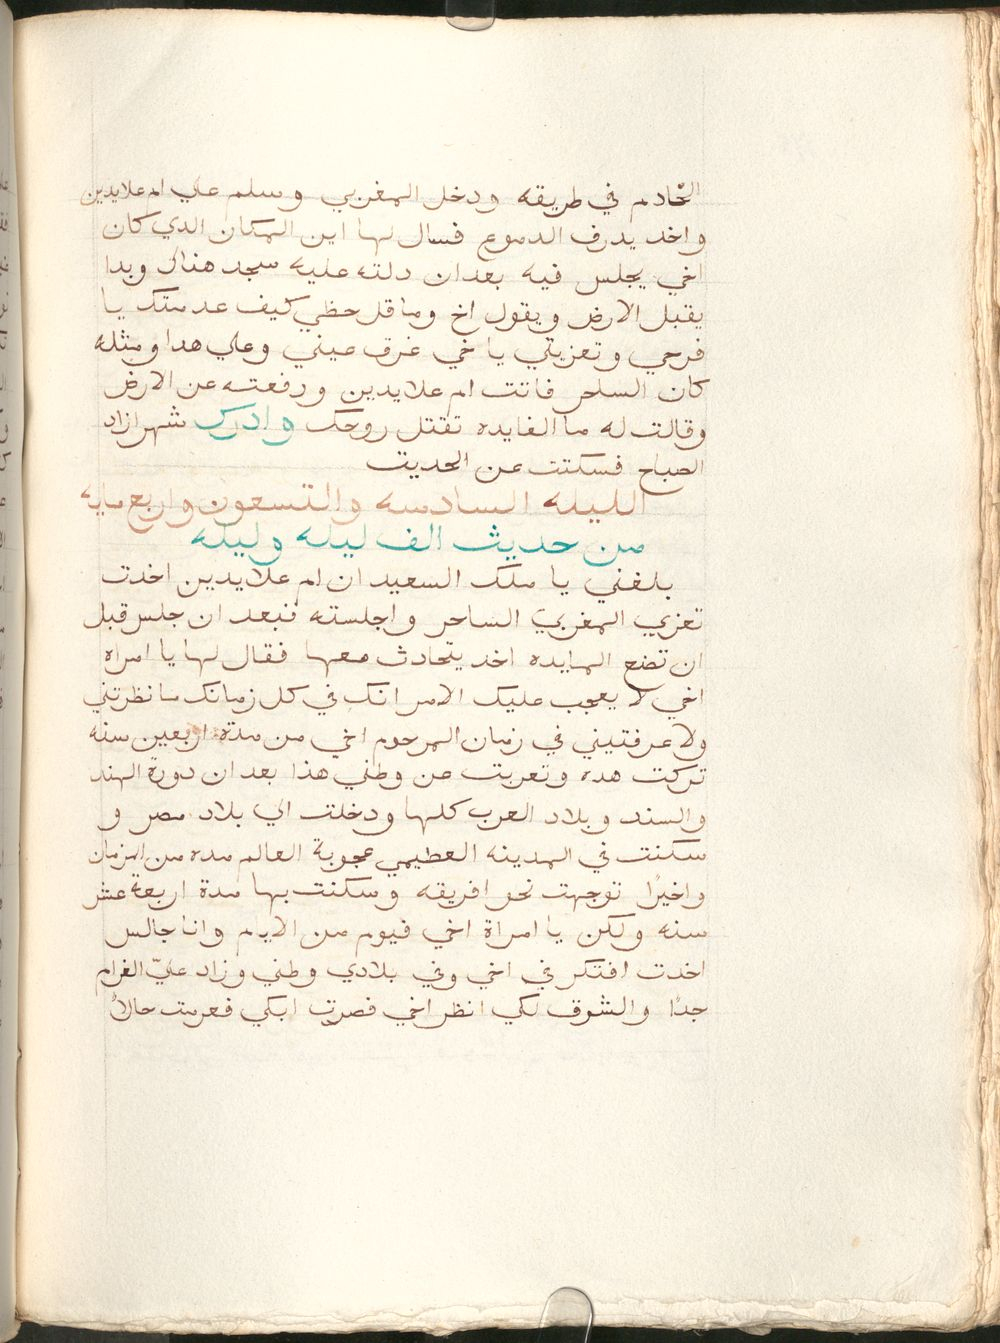 الخادم في طريقه ودخل المغربي وسلم علي ام علايدين
واخد يدرف الدموع فسال لها اين المكان الدي كان
اخي يجلس فيه بعد ان دلته عليه سجد هناك وبدا
يقبل الارض ويقول اخ وما قل حظي كيف عدمتك يا
فرحي وتعزيتي يا خي غرق عيني وعلي هدا ومثله
كان السلحر فاتت ام علايدين ورفعته عن الارض
وقالت له ما الفايده تقتل روحك وادرك شهرازاد
الصباح فسكتت عن الحديت
الليله السادسه والتسعون واربع مايه
من حديث الف ليله وليله
بلغني يا ملك السعيد ان ام علايدين اخدت
تعزي المغربي الساحر واجلسته فبعد ان جلس قبل
ان تضع المايده اخد يتحادث معها فقال لها يا امراه
اخي لا يعجب عليك الامر انك في كل زمانك ما نظرتني
ولا عرفتيني في زمان المرحوم اخي من مدة اربعين سنه
تركت هده وتعربت من وطني هذا بعد ان دورة الهند
والسند وبلاد العرب كلها ودخلت الي بلاد مصر و
سكنت في المدينه العطيمي عجوبة العالم مده من الزمان
واخيرًا توجهت نحو افريقه وسكنت بها مدة اربعة عشر
سنه ولكن يا امراة اخي فيوم من الايام وانا جالس
اخدت افتكر في اخي وفي بلادي وطني وزاد عليّ الغرام
جدًا والشوق لكي انظر اخي فصرت ابكي فعرمت حالاً